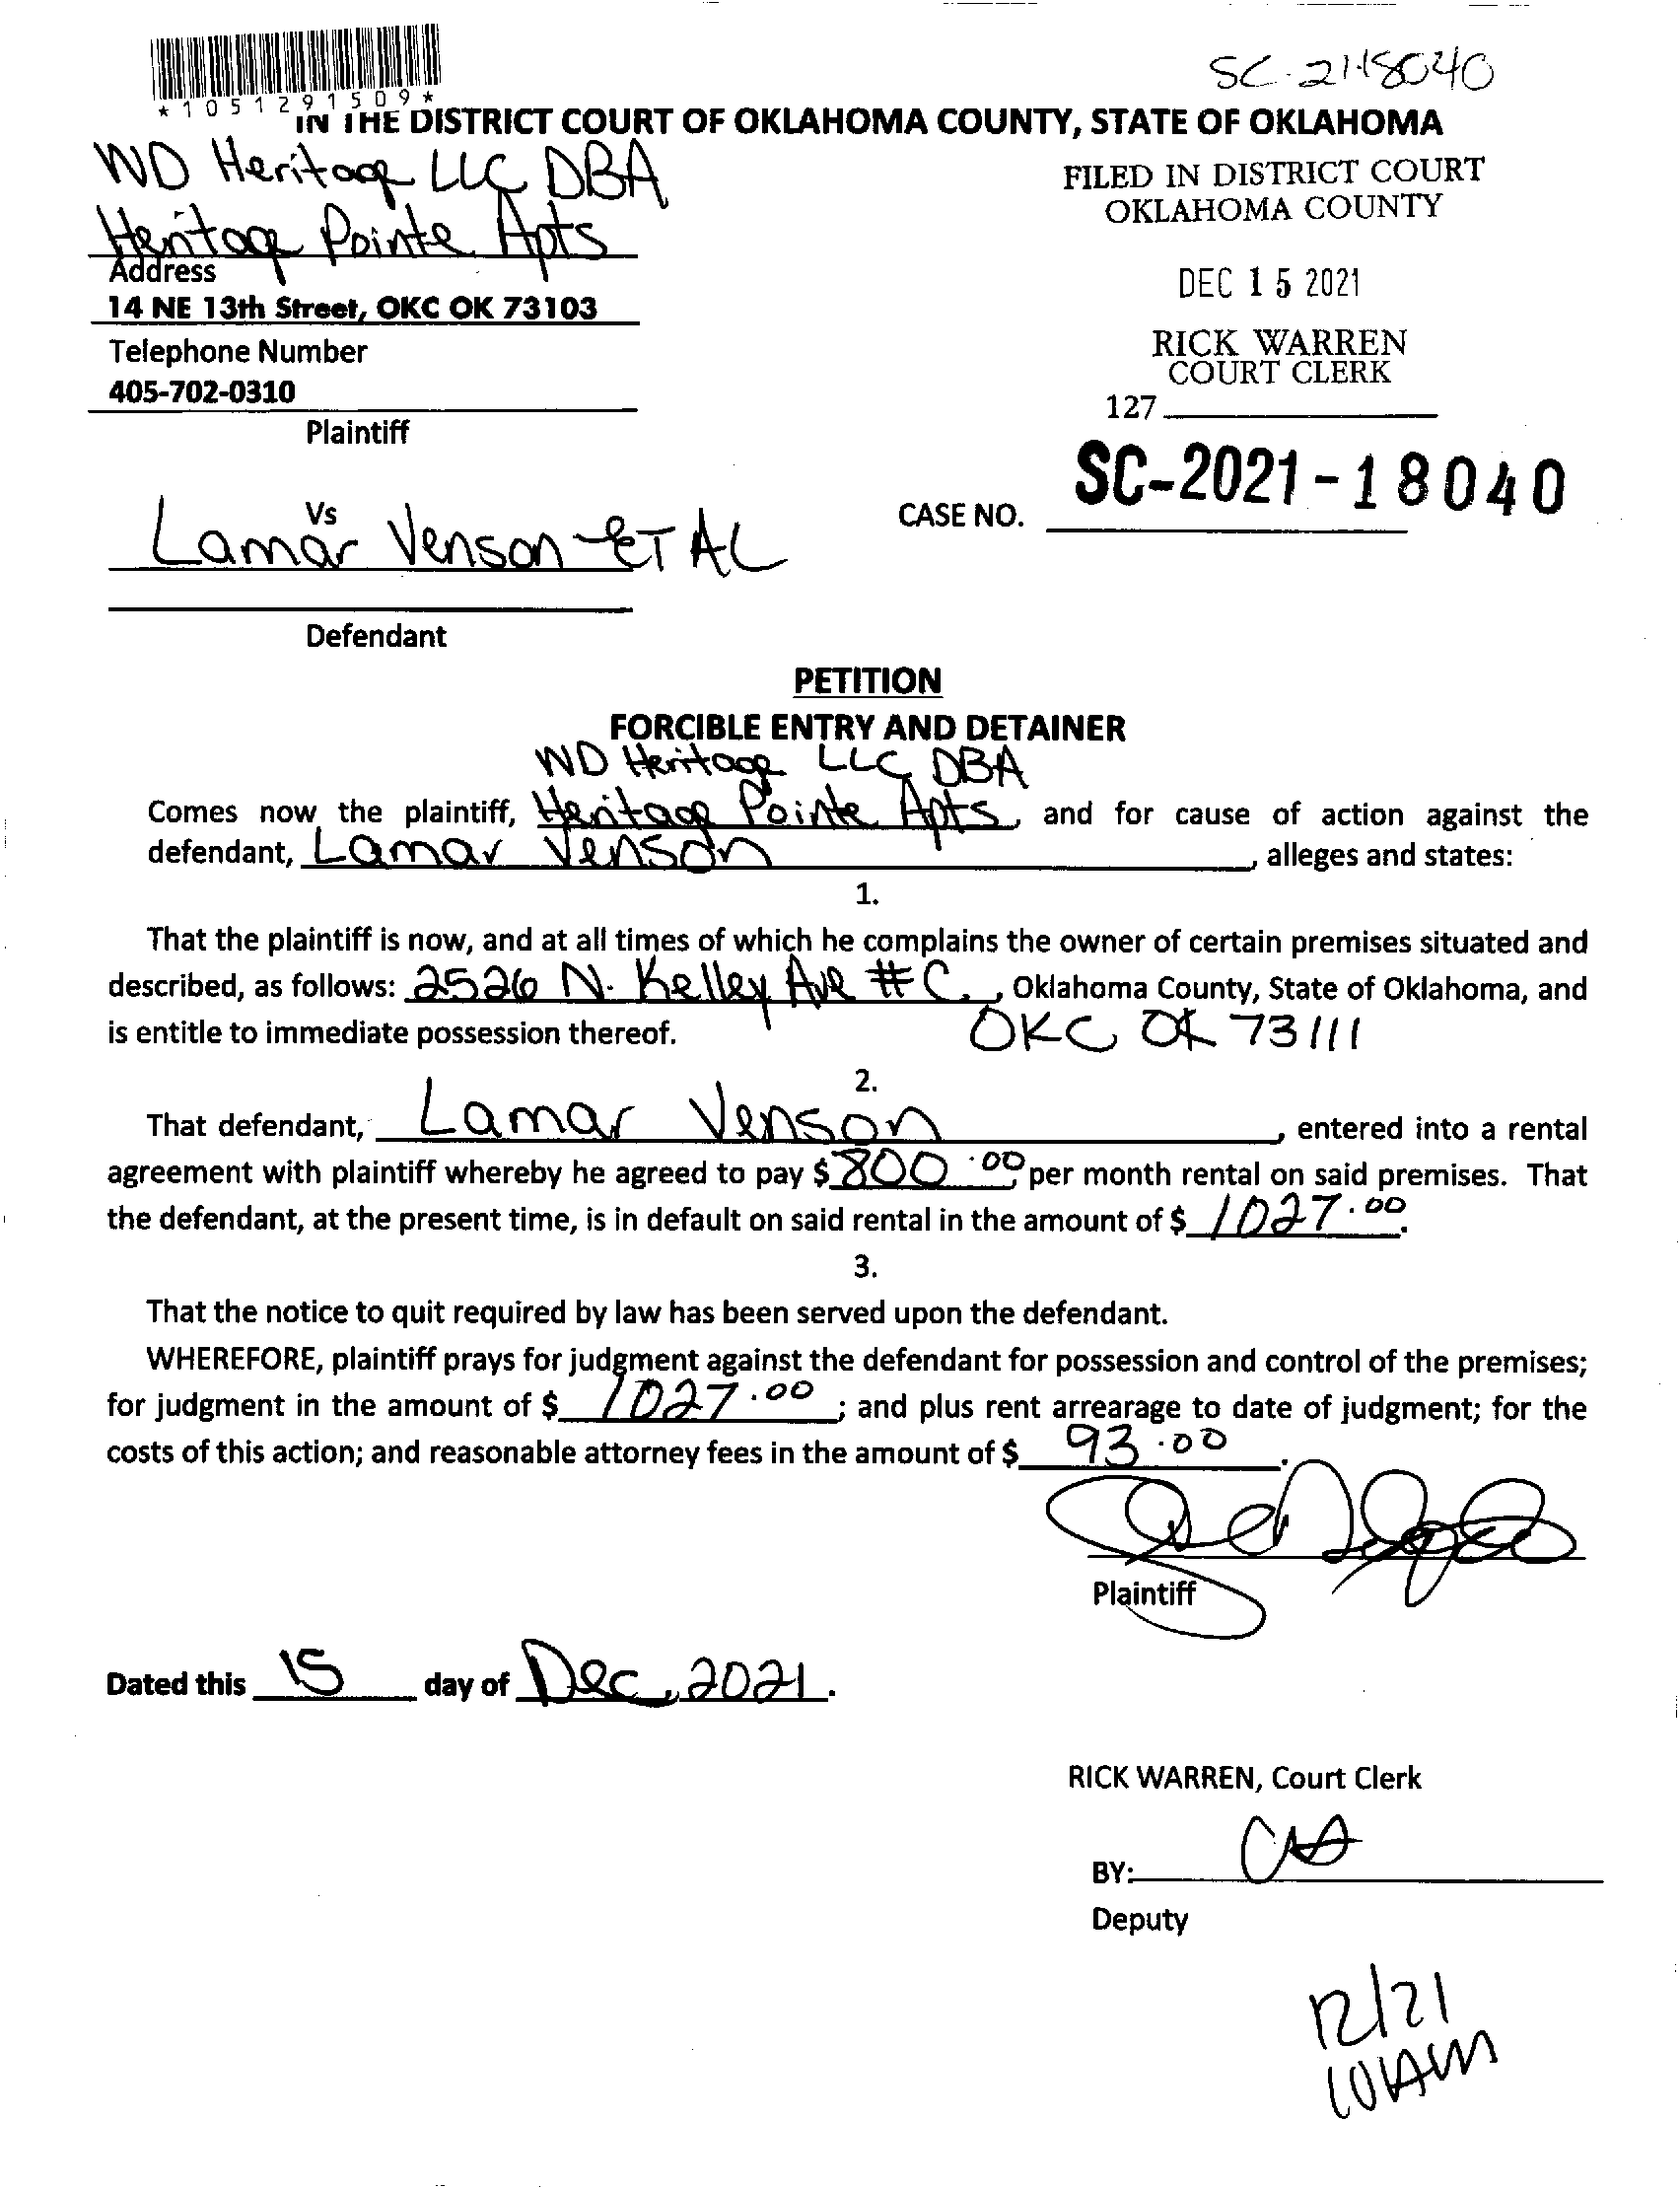 SC-21-18040
*1051291509*
IN THE DISTRICT COURT OF OKLAHOMA COUNTY, STATE OF OKLAHOMA
WD Heritage LLC DBA
Heritage Pointe Apts
Address
14 NE 13th Street, OKC OK 73103
Telephone Number
405-702-0310
Plaintiff
FILED IN DISTRICT COURT
OKLAHOMA COUNTY
DEC 15 2021
RICK WARREN
COURT CLERK
127
Vs
Lamar Venson ET AL
CASE NO. SC-2021-18040
Defendant
PETITION
FORCIBLE ENTRY AND DETAINER
WD Heritage LLC DBA
Comes now the plaintiff, Heritage Pointe Apts, and for cause of action against the
defendant, Lamar Venson, alleges and states:
1.
That the plaintiff is now, and at all times of which he complains the owner of certain premises situated and
described, as follows: 2526 N. Kelley Ave #C., Oklahoma County, State of Oklahoma, and
is entitle to immediate possession thereof. OKC OK 73111
2.
That defendant, Lamar Venson, entered into a rental
agreement with plaintiff whereby he agreed to pay $ 800.00 per month rental on said premises. That
the defendant, at the present time, is in default on said rental in the amount of $ 1027.00.
3.
That the notice to quit required by law has been served upon the defendant.
WHEREFORE, plaintiff prays for judgment against the defendant for possession and control of the premises;
for judgment in the amount of $ 1027.00; and plus rent arrearage to date of judgment; for the
costs of this action; and reasonable attorney fees in the amount of $ 93.00.
Plaintiff
Dated this 15 day of Dec, 2021.
RICK WARREN, Court Clerk
BY:
Deputy
12/21
10AM